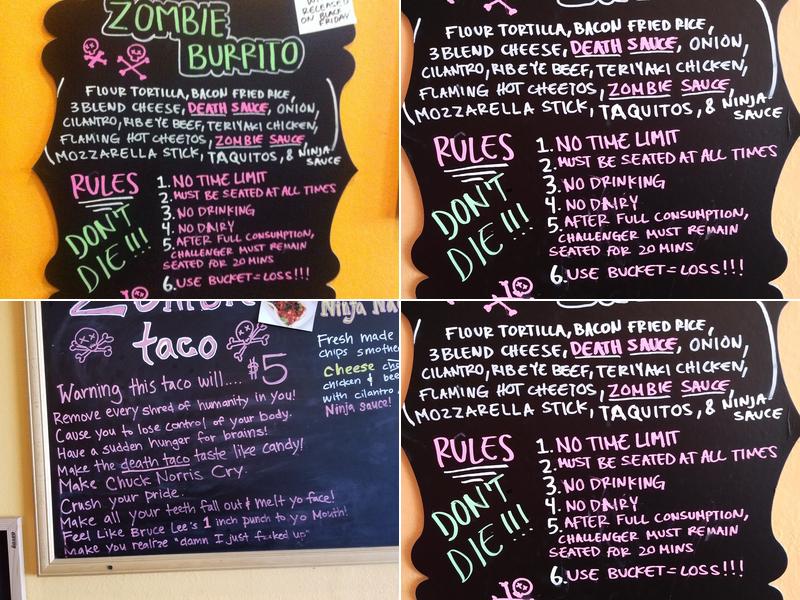 RELEASED
ON BLACK
FRIDAY
ZOMBIE
BURRITO
FLOUR TORTILLA, BACON FRIED RICE,
3 BLEND CHEESE, DEATH SAUCE, ONION,
CILANTRO, RIBEYE BEEF, TERIYAKI CHICKEN,
FLAMING HOT CHEETOS, ZOMBIE SAUCE,
MOZZARELLA STICK, TAQUITOS, & NINJA
SAUCE
RULES
DON'T
DIE!!!
1. NO TIME LIMIT
2. MUST BE SEATED AT ALL TIMES
3. NO DRINKING
4. NO DAIRY
5. AFTER FULL CONSUMPTION,
CHALLENGER MUST REMAIN
SEATED FOR 20 MINS
6. USE BUCKET = LOSS!!!
FLOUR TORTILLA, BACON FRIED RICE,
3 BLEND CHEESE, DEATH SAUCE, ONION,
CILANTRO, RIBEYE BEEF, TERIYAKI CHICKEN,
FLAMING HOT CHEETOS, ZOMBIE SAUCE,
MOZZARELLA STICK, TAQUITOS, & NINJA
SAUCE
RULES
DON'T
DIE!!!
1. NO TIME LIMIT
2. MUST BE SEATED AT ALL TIMES
3. NO DRINKING
4. NO DAIRY
5. AFTER FULL CONSUMPTION,
CHALLENGER MUST REMAIN
SEATED FOR 20 MINS
6. USE BUCKET = LOSS!!!
Zombie
taco
$5
Warning this taco will....
Remove every shred of humanity in you!
Cause you to lose control of your body.
Have a sudden hunger for brains!
Make the death taco taste like candy!
Make Chuck Norris Cry.
Crush your pride.
Make all your teeth fall out & melt yo face!
Feel Like Bruce Lee's 1 inch punch to yo Mouth!
Make you realize "damn I just f*cked up"
Ninja Na
Fresh made
chips smothe
Cheese
chicken & bee
with cilantro
Ninja sauce!
FLOUR TORTILLA, BACON FRIED RICE,
3 BLEND CHEESE, DEATH SAUCE, ONION,
CILANTRO, RIBEYE BEEF, TERIYAKI CHICKEN,
FLAMING HOT CHEETOS, ZOMBIE SAUCE,
MOZZARELLA STICK, TAQUITOS, & NINJA
SAUCE
RULES
DON'T
DIE!!!
1. NO TIME LIMIT
2. MUST BE SEATED AT ALL TIMES
3. NO DRINKING
4. NO DAIRY
5. AFTER FULL CONSUMPTION,
CHALLENGER MUST REMAIN
SEATED FOR 20 MINS
6. USE BUCKET = LOSS!!!